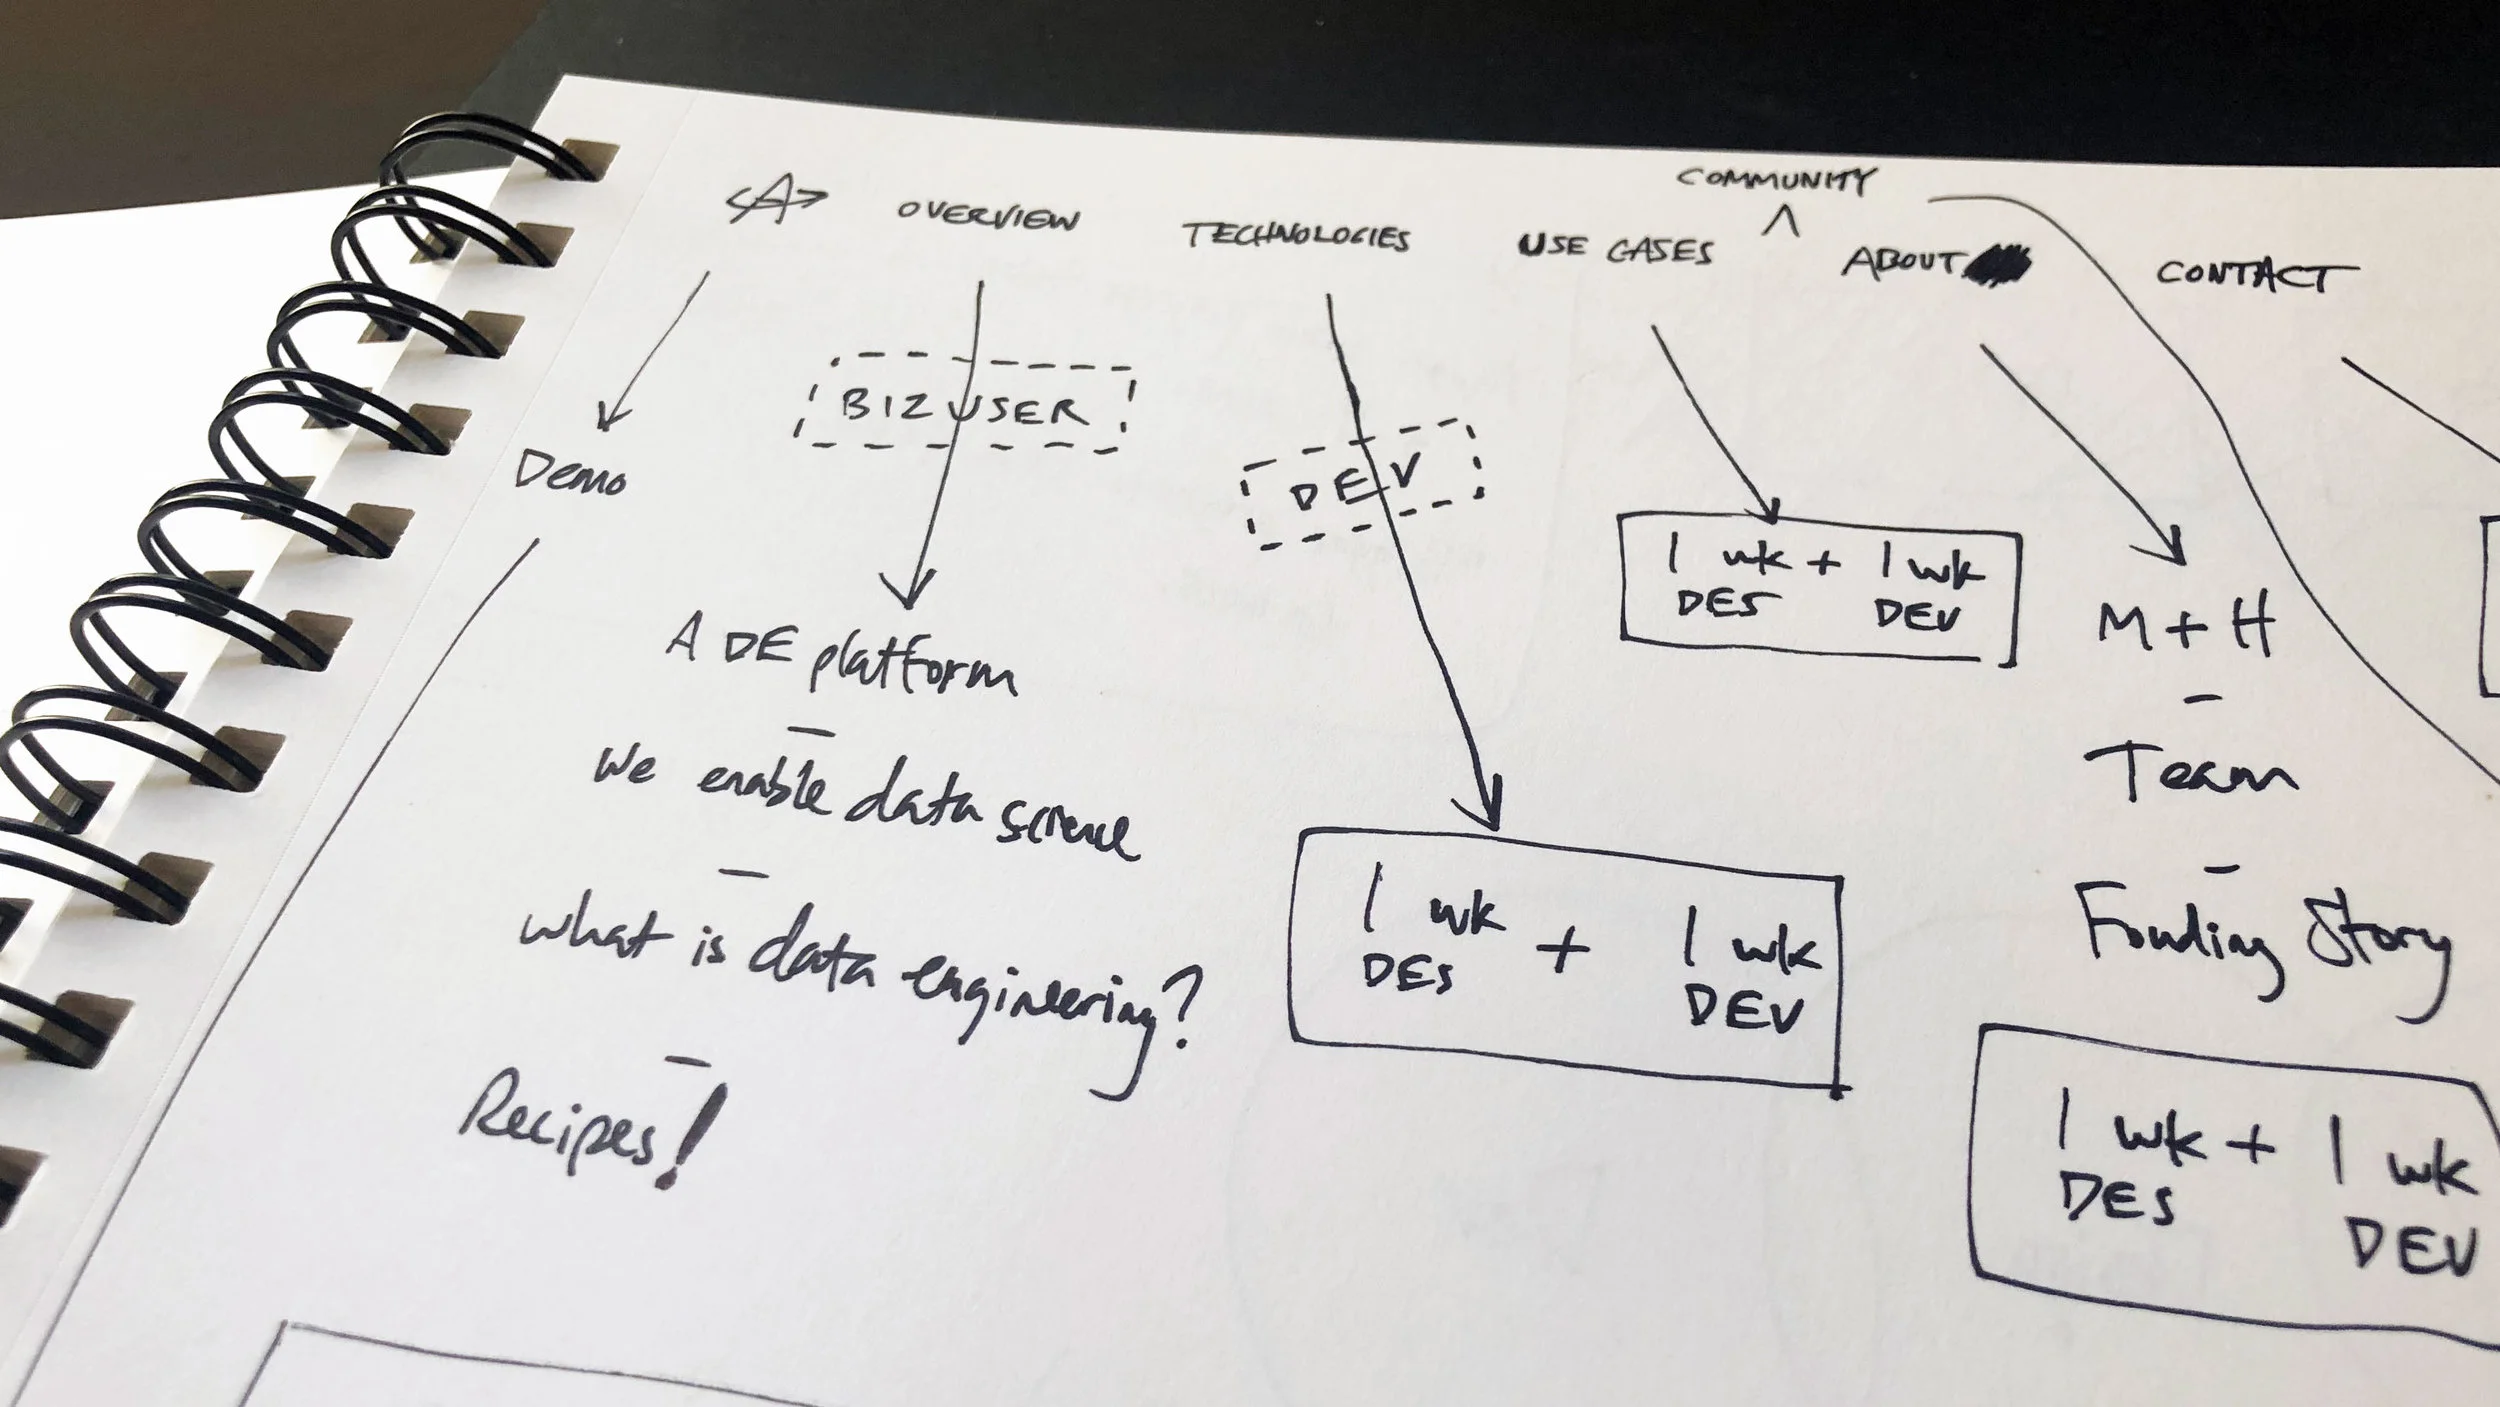 COMMUNITY
<A>
OVERVIEW
TECHNOLOGIES
USE CASES
^
ABOUT
CONTACT
BIZ USER
DEV
Demo
1 wk + 1 wk
DES DEV
A DE platform
–
We enable data science
–
What is data engineering?
–
Recipes!
1 wk + 1 wk
DES DEV
M + H
–
Team
–
Founding Story
1 wk + 1 wk
DES DEV